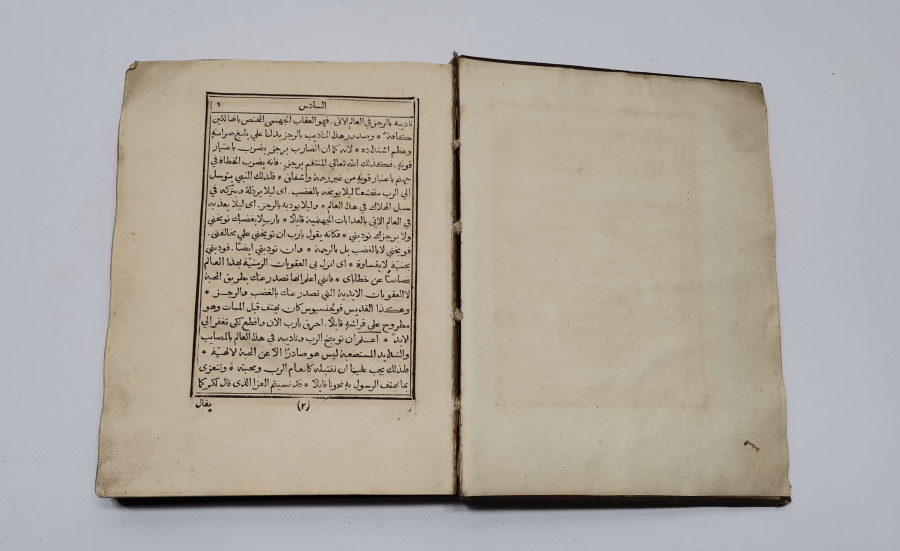 السادس ٩
تاديبه بالرجز في العالم الاتي. فهو العقاب الجهنمي المختص بالهالكين
كافة * وصدور هذا التاديب بالرجز يدلنا علي بليغ صرامته
وعظم اشتداده * لانه كما ان الضارب برجز يضرب باعتبار
قوته. فكذلك الله تعالي المنتقم برجز. فانه يضرب الخطاة في
جهنم باعتبار قوته من غير رحمة واشفاق * فلذلك النبي يتوسل
الي الرب متخشعًا ليلا يوبخه بالغضب. اي ليلا يرذله ويتركه في
سبل الهلاك في هذا العالم * وليلا يوديه بالرجز. اي ليلا يعذبه
في العالم الاتي بالعذابات الجهنمية قايلًا * يارب لا بغضبك توبخني
ولا برجزك تودبني * فكانه يقول يارب ان توبخني علي مخالفتي.
فوبخني لا بالغضب بل بالرحمة * وان تودبني ايضًا. فودبني
بحنية لا بقساوة * اي انزل بي العقوبات الزمنية بهذا العالم
قصاصًا عن خطاياي * فانني اعلم انها تصدر عنك بطريق المحبة
لا العقوبات الابدية التي تصدر عنك بالغضب والرجز *
وهكذا القديس فولجنسيوس كان يهتف قبل الممات وهو
مطروح علي فراشه قايلًا. احرق يارب الان واقطع لكي تغفر الي
الابد * اعلم ان توبيخ الرب وتاديبه في هذا العالم بالمصايب
والشدايد المستصعبة ليس هو صادرًا الا عن المحبة الالهية *
فلذلك يجب علينا ان نقتبله كانعام الرب ومحبته * ونتعزي
بما يهتف الرسول به نحونا قايلًا * قد نسيتم العزا الذي قال لكم كما
(٢) يقال